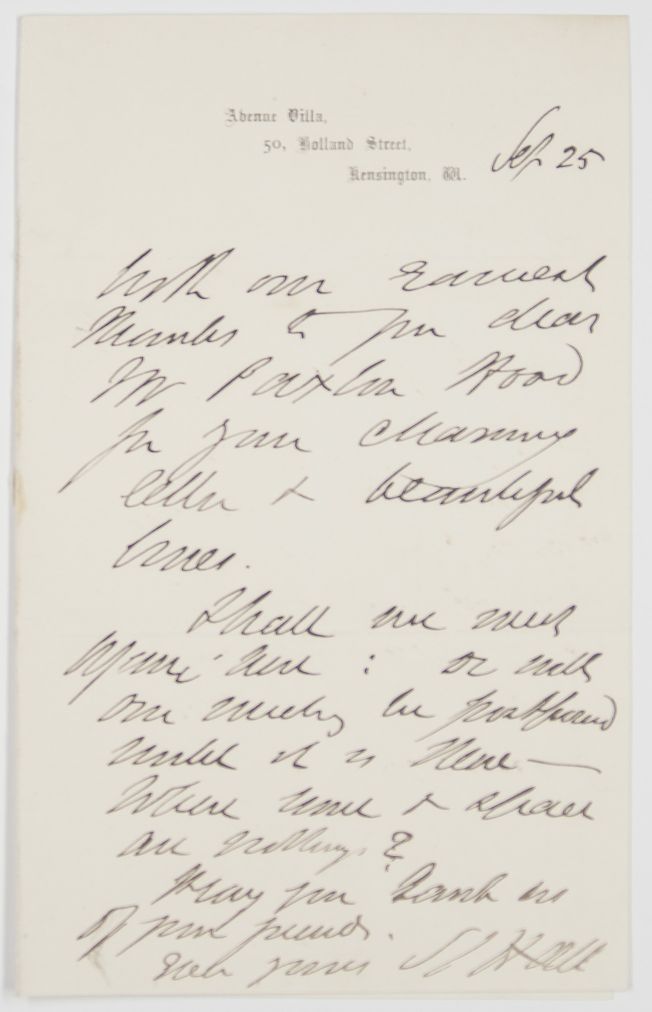 Avenue Villa,
50, Holland Street,
Kensington, W.
Sep 25
With our Earnest
thanks to you dear
Mr Paxton Hood
for your charming
letter & beautiful
lines.
Shall we meet
again here : or will
our meeting be postponed
until it is There —
Where time & space
are nothings?
Pray you rank us
of your friends.
Ever yours S C Hall